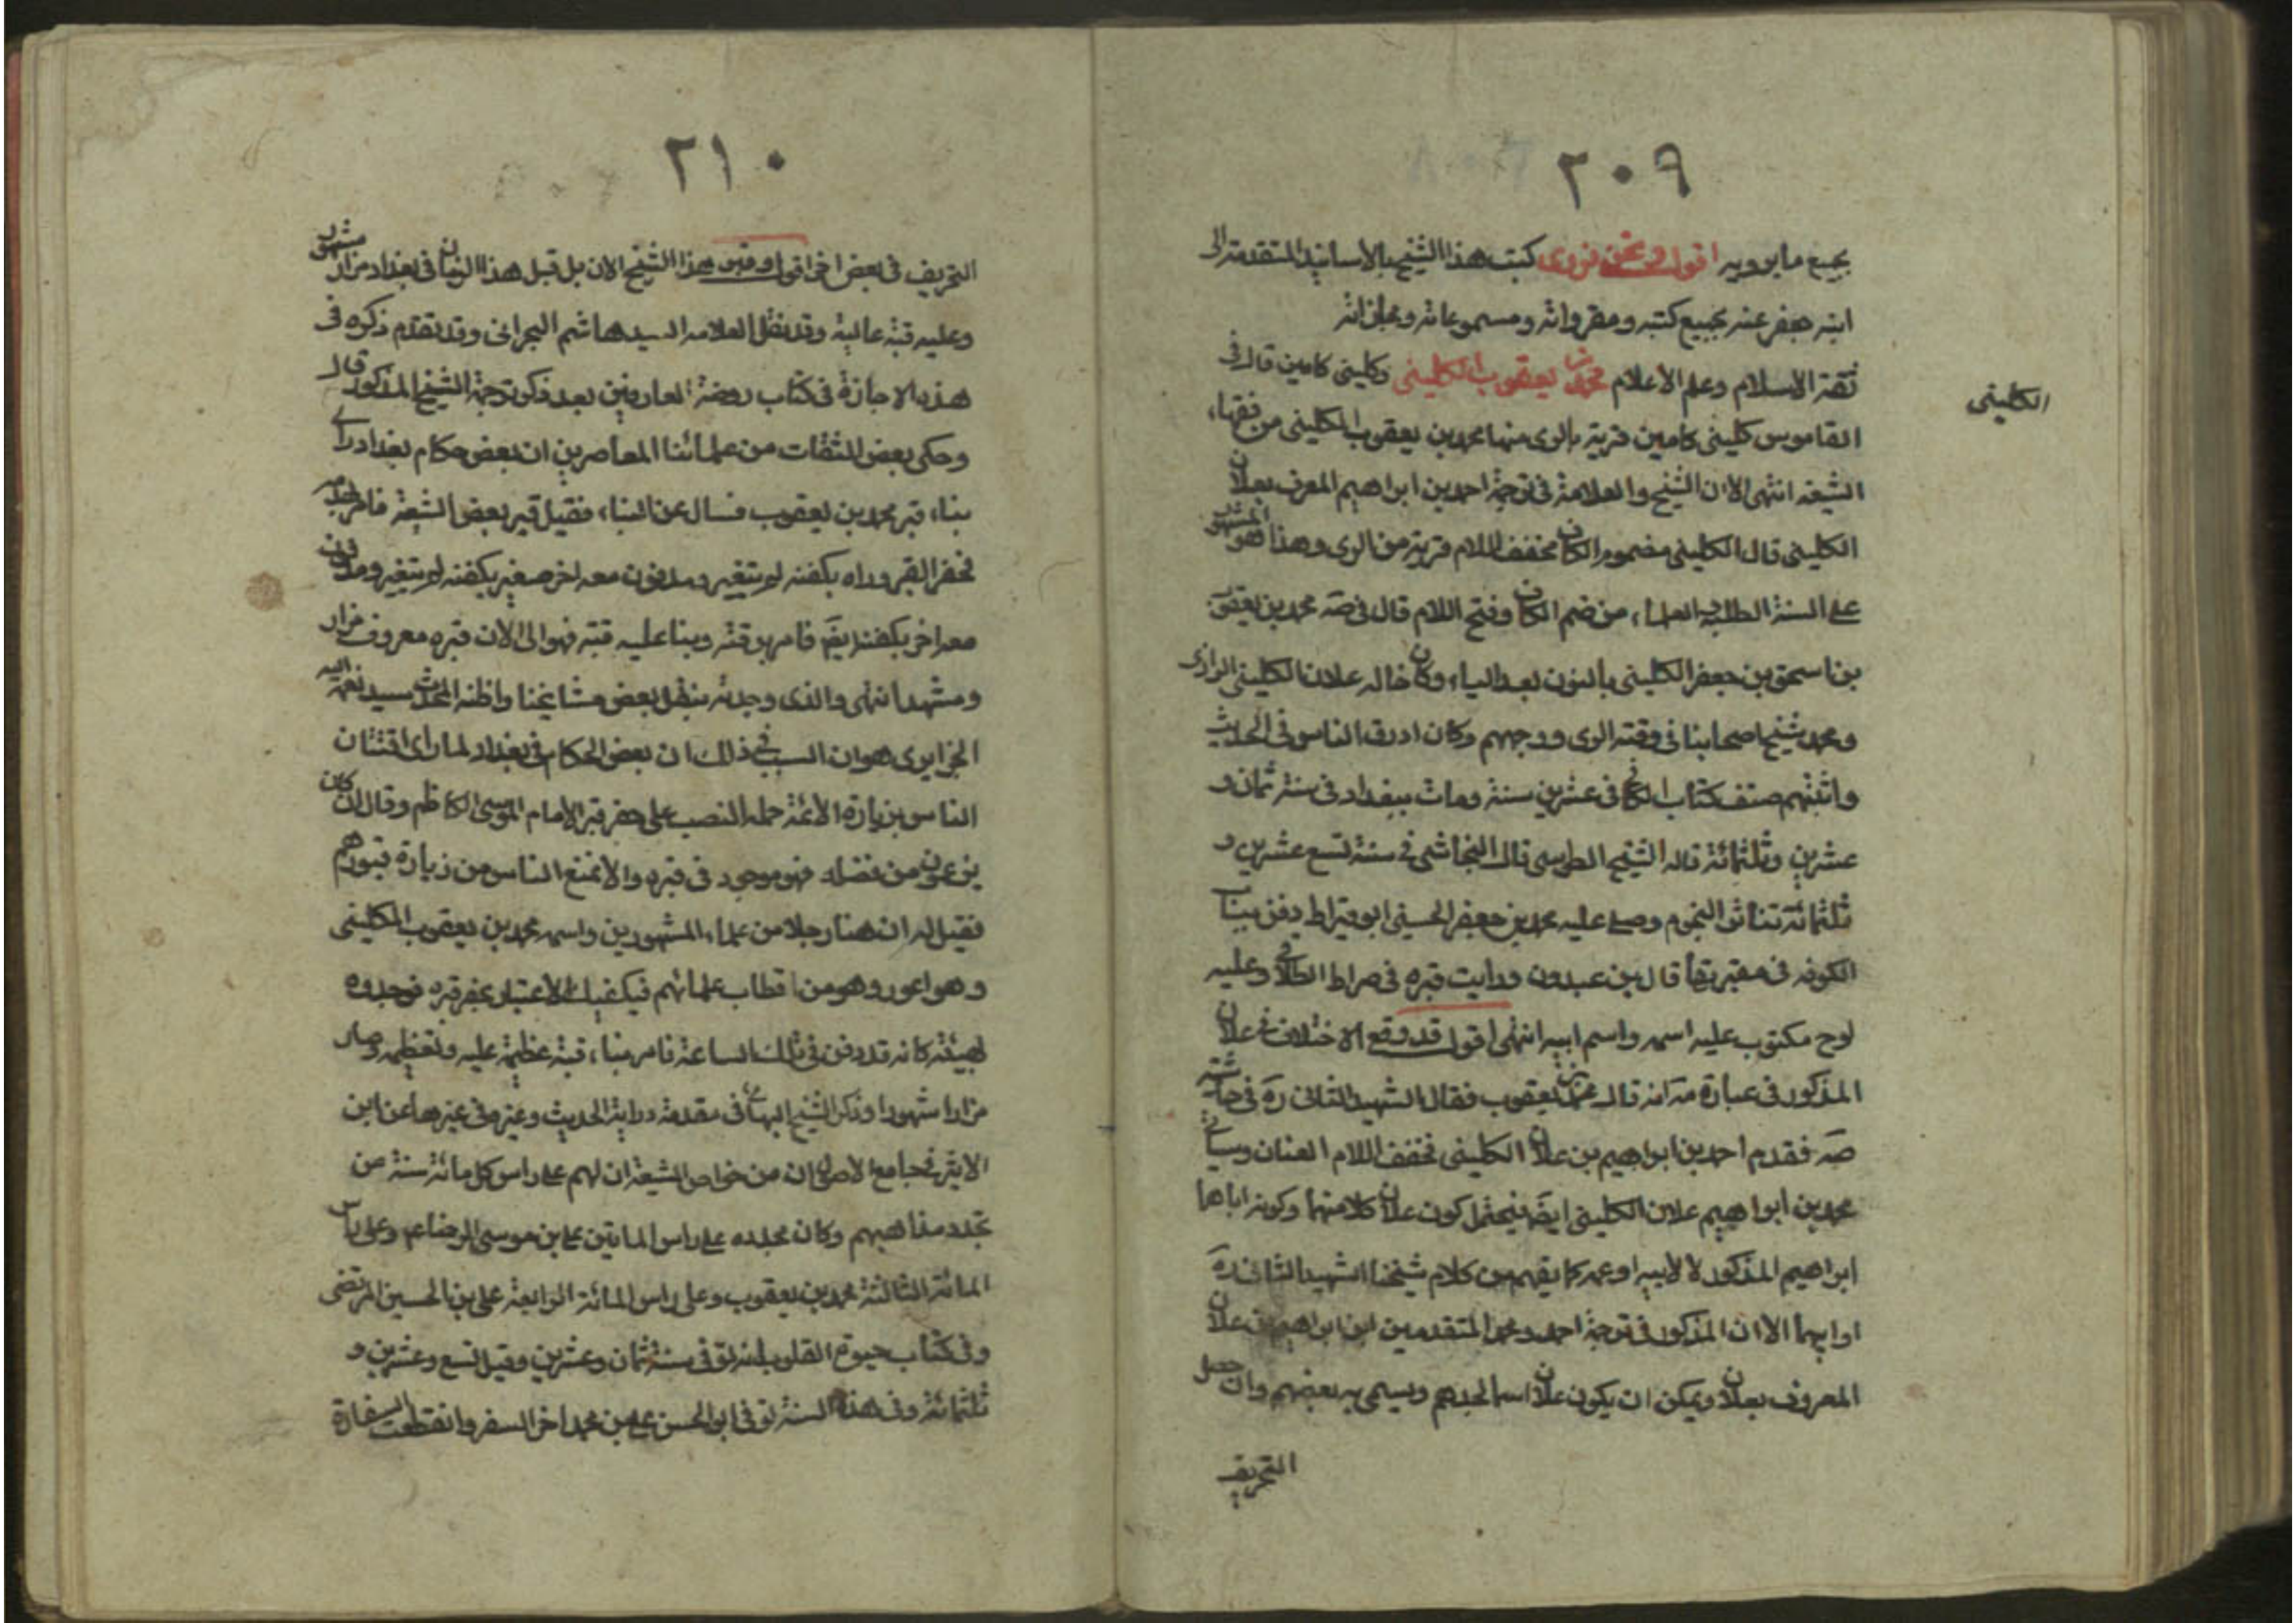 ٢٠٩
بجميع ما يرويه اقول ونحن نروى كتب هذا الشيخ بالاسانيد المتقدمة الى
ابنه جعفر عنه بجميع كتبه ومقرواته ومسموعاته ومجازاته
ثقة الاسلام وعلم الاعلام محمد بن يعقوب الكلينى وكلينى كامين قال فى
الكلينى
القاموس كلينى كامين قرية بالرى منها محمد بن يعقوب الكلينى من فقهاء
الشيعه انتهى الا ان الشيخ والعلامة فى ترجمة احمد بن ابراهيم المعرف بعلان
الكلينى قال الكلينى مضموم الكاف مخفف اللام قرية من الرى وهذا هو المشهور
على السنة الطلبه العلماء من ضم الكاف وفتح اللام قال فى صه محمد بن يعقوب
بن اسحق بن جعفر الكلينى بالنون بعد الياء وكان خاله علان الكلينى الرازى
ومحمد شيخ اصحابنا فى وقته الرى ووجههم وكان اوثق الناس فى الحديث
واثبتهم صنف كتاب الكافى فى عشرين سنة ومات ببغداد فى سنة ثمان و
عشرين وثلثمائة قاله الشيخ الطوسى قال النجاشى فى سنة تسع عشرين و
ثلثمائة تناثر النجوم وصلى عليه محمد بن جعفر الحسينى ابو قيراط دفن بباب
الكوفه فى مقبرتها قال بن عبدون ورايت قبره فى صراط الطائى وعليه
لوح مكتوب عليه اسمه واسم ابيه انتهى اقول قد وقع الاختلاف فى علان
المذكور فى عبارة مه انه قال محمد بن يعقوب فقال الشهيد الثانى ره فى حاشية
صه فقدم احمد بن ابراهيم بن علان الكلينى مخفف اللام العنان وسياتى
محمد بن ابراهيم علان الكلينى ايضا فيحتمل كون علان كلا منهما وكونه اباها
ابراهيم المذكور لا لابيه او عمه كما يفهم من كلام شيخنا الشهيد الثانى ره
او ابيهما الا ان المذكور فى ترجمة احمد ومحمد المتقدمين ابن ابراهيم بن علان
المعروف بعلان ويمكن ان يكون علان اسما لجدهم ويسمى به بعضهم وان حصل
التحريف
٢١٠
التحريف فى بعض اخر اقول وقبر هذا الشيخ الان بل قبل هذا الزمان فى بغداد مزار مشهور
وعليه قبة عالية وقد نقل العلامه السيد هاشم البحرانى وقد تقدم ذكره فى
هذه الاجازة فى كتاب روضة العارفين بعد ذكر ترجمة الشيخ المذكور قال
وحكى بعض الثقات من علمائنا المعاصرين ان بعض حكام بغداد راى
بناء قبر محمد بن يعقوب فسال عن البناء فقيل قبر بعض الشيعة فامر بهدمه
فحفر القبر وراه بكفنه لم يتغير ومدفون معه اخر صغير بكفنه لم يتغير ومدفون
معه اخر بكفنه ايضا فامر بدفنه وبنا عليه قبة فهو الى الان قبره معروف مزار
ومشهد انتهى والذى وجدته بنقل بعض مشايخنا واظنه المحدث سيد نعمة الله
الجزايرى هو ان السبب فى ذلك ان بعض الحكام فى بغداد لما راى افتتان
الناس بزيارة الائمة حمله النصب على حفر قبر الامام الموسى الكاظم وقال ان كان
يزعمون من فضله فهو موجود فى قبره والا نمنع الناس من زيارة قبورهم
فقيل له ان هنا رجلا من علماء المشهورين واسمه محمد بن يعقوب الكلينى
وهو اعور وهو من اقطاب علمائهم فيكفيك الاعتبار بحفر قبره فوجدوه
بهيئته كانه قد دفن فى تلك الساعة فامر ببناء قبة عظيمة عليه وتعظيمه وصار
مزارا مشهورا وذكر الشيخ البهائى فى مقدمة دراية الحديث وغيره فى غيرها عن ابن
الاثير فى جامع الاصول ان من خواص الشيعة ان لهم على راس كل مائة سنة من
تجدد مذاهبهم وكان مجدده على راس الماتين على بن موسى الرضا ع وعلى راس
المائة الثالثة محمد بن يعقوب وعلى راس المائة الرابعة على بن الحسين المرتضى
وفى كتاب حيوة القلوب انه توفى سنة ثمان وعشرين وقيل تسع وعشرين و
ثلثمائة وفى هذه السنة توفى ابو الحسن على بن محمد اخر السفر وانقطعت السفارة